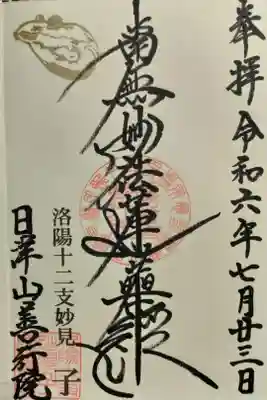 奉拝 令和六年七月廿三日
南無妙法蓮華経
洛陽十二支妙見 子
日菩山善行院